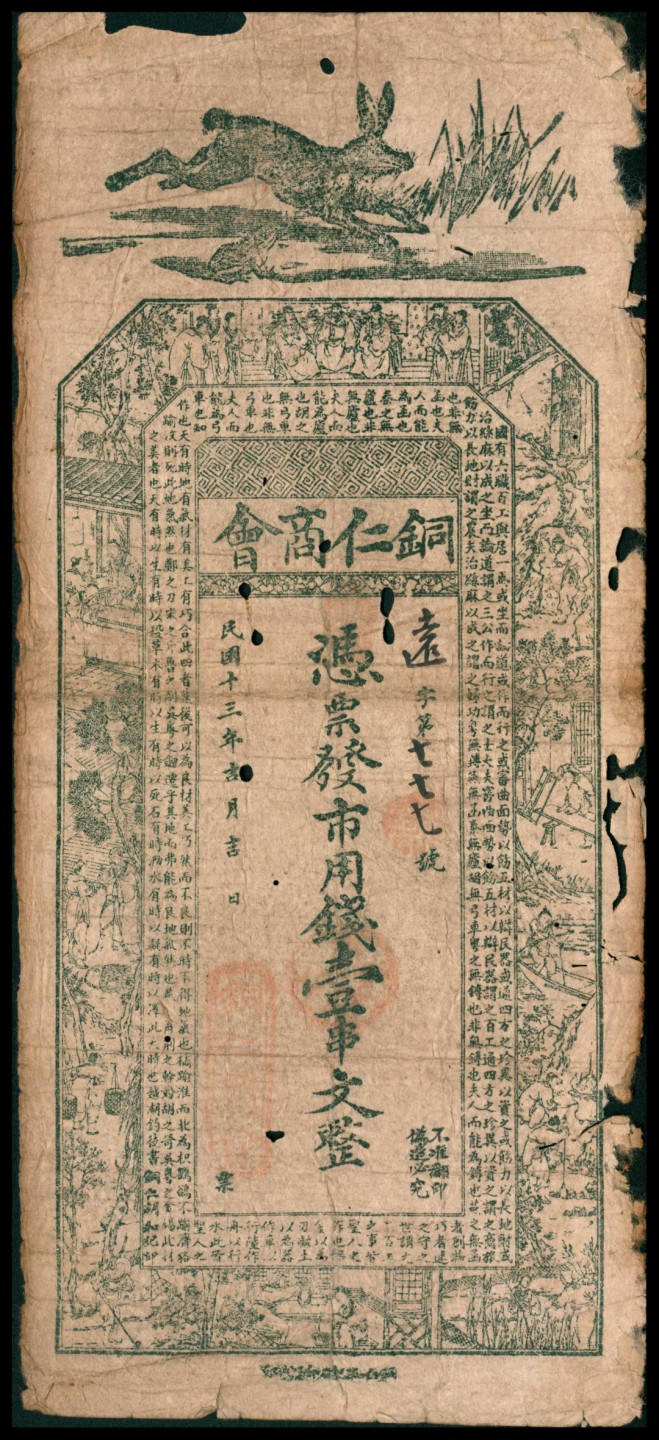 銅仁商會
遠字第七七七號
憑票發市用錢壹串文整
民國十三年吉月吉日
票
不准翻印
偽造必究
國有六職百工與居一焉或坐而論道或作而行之或審曲面勢以飭五材以辨民器或通四方之珍異以資之或飭力以長地財或
治絲麻以成之坐而論道謂之三公作而行之謂之士大夫審曲面勢以飭五材以辨民器謂之百工通四方之珍異以資之謂之商旅
飭力以長地財謂之農夫治絲麻以成之謂之婦功粵無鎛燕無函秦無廬胡無弓車粵之無鎛也非無鎛也夫人而能為鎛也燕之無函
也非無
函也夫
人而能
為函也
秦之無
廬也非
無廬也
夫人而
能為廬
也胡之
無弓車
也非無
弓車也
夫人而
能為弓
車也知
者創物
巧者述
之守之
世謂之
工百工
之事皆
聖人之
作也爍
金以為
刃凝土
以為器
作車以
行陸作
舟以行
水此皆
聖人之
作也天有時地有氣材有美工有巧合此四者然後可以為良材美工巧然而不良則不時不得地氣也橘踰淮而北為枳鸜鵒不踰濟貉
踰汶則死此地氣然也鄭之刀宋之斤魯之削吳粵之劍遷乎其地而弗能為良地氣然也燕之角荊之幹妢胡之笴吳粵之金錫此材
之美者也天有時以生有時以殺草木有時以生有時以死石有時以泐水有時以凝有時以澤此天時也銅仁胡和記印